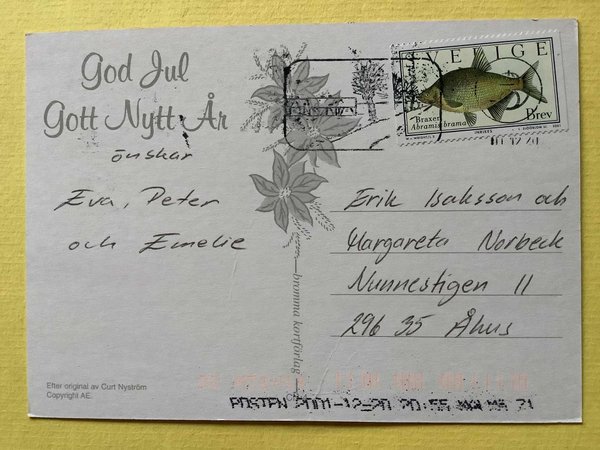 God Jul
Gott Nytt År
önskar
Eva, Peter
och Emelie
Efter original av Curt Nyström
Copyright AE.
bromma kortförlag
SVERIGE
Braxen
Abramis brama
Brev
Erik Isaksson och
Margareta Norbeck
Nunnestigen 11
296 35 Åhus
POSTEN 2001-12-20 20:55